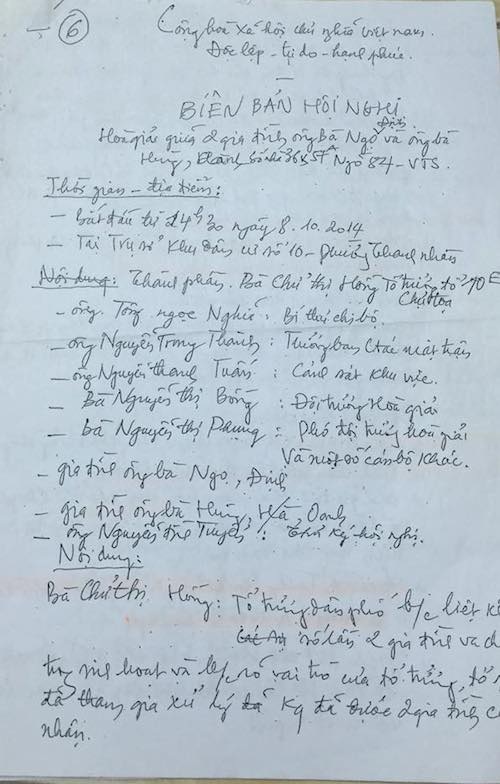 - ⑥ Cộng hoà xã hội chủ nghĩa việt nam.
Độc lập - tự do - hạnh phúc.
BIÊN BẢN HỘI NGHỊ
Hoà giải giữa 2 gia đình ông Bà Ngọ Định và ông bà
Hùng, số nhà Ngõ 84 - VTS.
Thời gian - địa điểm:
- Bắt đầu từ 14h30 ngày 8.10.2014
- Tại Trụ sở khu dân cư số 10 - phường Thanh nhàn
Nội dung: Thành phần. Bà Chử thị Hồng Tổ trưởng tổ 70E
Chủ toạ
- ông. Tống ngọc Nghiế : Bí thư chi bộ.
- ông Nguyễn Trọng Thành : Trưởng ban Ctác mặt trận
- ông Nguyễn thanh Tuấn : Cảnh sát khu vực.
- Bà Nguyễn thị Bông : Đội trưởng Hoà giải
- bà Nguyễn thị Phụng : phó đội trưởng hoà giải
Và một số cán bộ khác.
- gia đình ông bà Ngọ, Định
- gia đình ông bà Hùng, Hà, Oanh
- ông Nguyễn đình Tuyến : thư ký hội nghị.
Nội dung:
Bà Chử thị Hồng: Tổ trưởng dân phố b/c liệt k
số lần 2 gia đình va ch
trong sinh hoạt và b/c rõ vai trò của tổ trưởng, tổ
đã tham gia xử lý đã kq đã được 2 gia đình c
nhận.